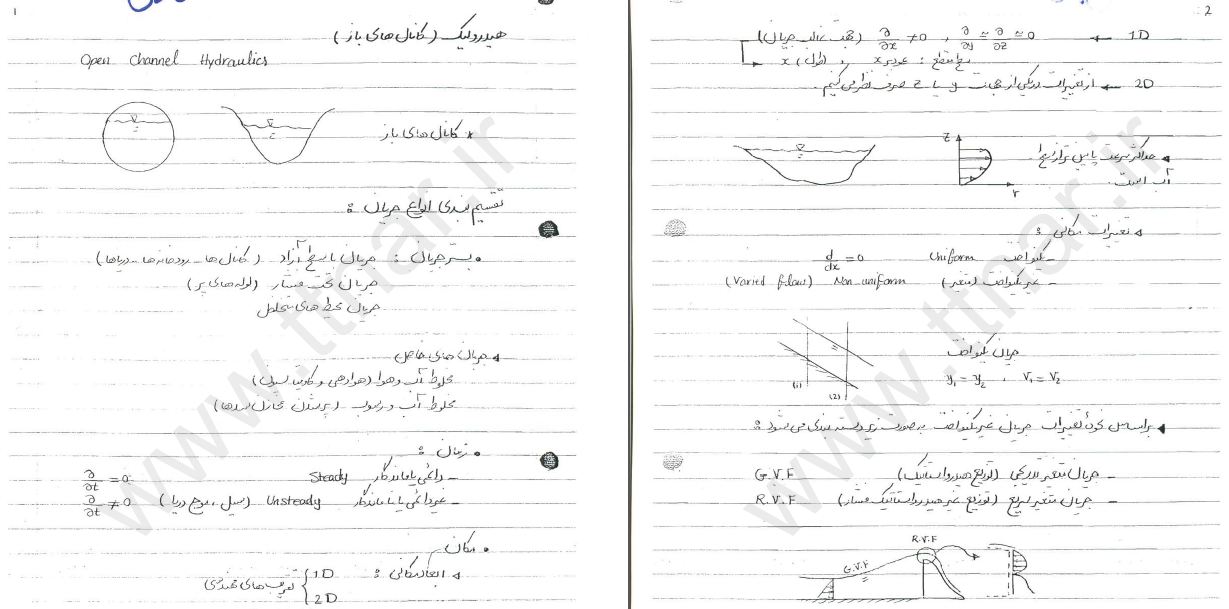 1
هیدرولیک (کانال های باز)
Open Channel Hydraulics
* کانال های باز
تقسیم بندی انواع جریان :
• بستر جریان : جریان با سطح آزاد (کانال ها - رودخانه ها - دریاها)
جریان تحت فشار (لوله های پر)
جریان محیط های متخلخل
جریان های خاص
مخلوط آب و هوا (هوادهی و کاویتاسیون)
مخلوط آب و رسوب (پر شدن مخازن سدها)
• زمان :
- دائمی یا ماندگار Steady ∂/∂t = 0
- غیر دائمی یا ناماندگار Unsteady (سیل، موج دریا) ∂/∂t ≠ 0
• مکان
ابعاد مکانی : { 1D
2D
2
1D ← ∂/∂x ≠ 0 , ∂/∂y ≃ ∂/∂z ≃ 0 (جهت غالب جریان)
x (طول) و
2D ← از تغییرات در یکی از جهات y یا z صرف نظر می کنیم.
z
حداکثر سرعت پایین تر از سطح
آب است.
v
تغییرات مکانی :
- یکنواخت Uniform d/dx = 0
- غیر یکنواخت (متغیر) Non uniform (Varied flow)
جریان یکنواخت
y₁ = y₂ , V₁ = V₂
(1)
(2)
براساس نحوه تغییرات جریان غیر یکنواخت به صورت زیر دسته بندی می شود :
- جریان متغیر تدریجی (توزیع هیدرواستاتیک) G.V.F
- جریان متغیر سریع (توزیع غیر هیدرواستاتیک فشار) R.V.F
R.V.F
G.V.F
www.ttnar.ir
www.ttnar.ir